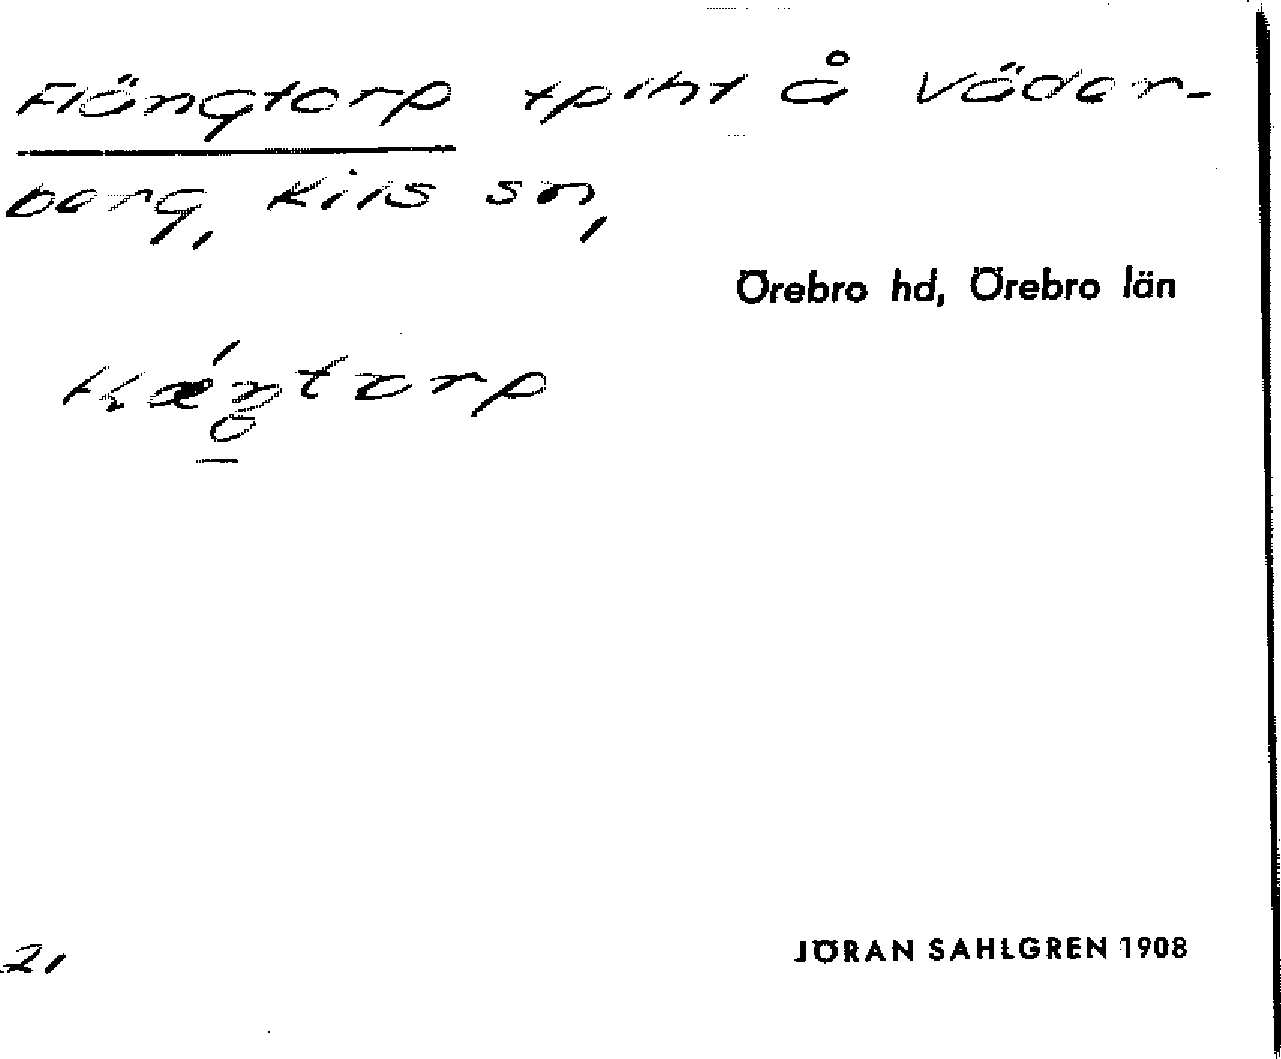 Flängtorp tplht å Väder-
berg, Kils sn,
Örebro hd, Örebro län
torp
21
JÖRAN SAHLGREN 1908